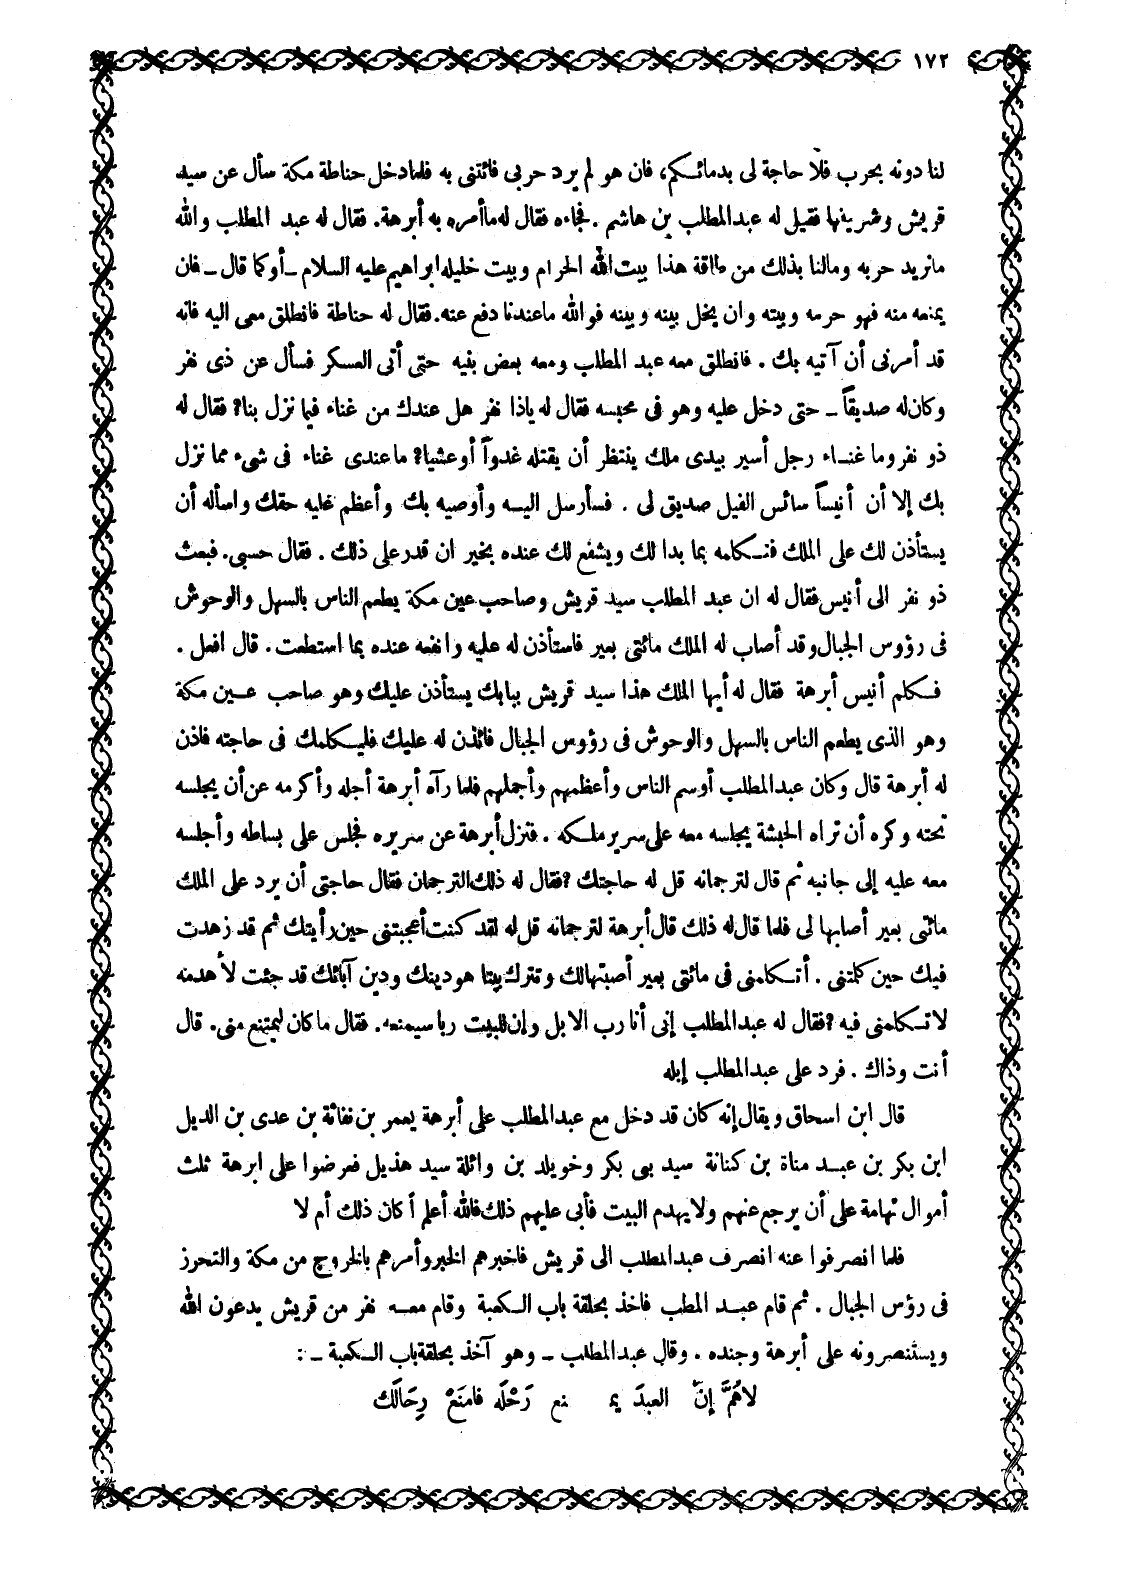 ١٧٢
لنا دونه بحرب فلا حاجة لى بدمائكم، فان هو لم يرد حربى فائتنى به فلما دخل حناطة مكة سأل عن سيد
قريش وشريفها فقيل له عبد المطلب بن هاشم . فجاءه فقال له ما أمره به أبرهة. فقال له عبد المطلب والله
مانريد حربه ومالنا بذلك من طاقة هذا بيت الله الحرام وبيت خليله ابراهيم عليه السلام ـ أوكما قال ـ فان
يمنعه منه فهو حرمه وبيته وان يخل بينه وبينه فوالله ماعندنا دفع عنه. فقال له حناطة فانطلق معى اليه فانه
قد أمرنى أن آتيه بك . فانطلق معه عبد المطلب ومعه بعض بنيه حتى أتى العسكر فسأل عن ذى نفر
وكان له صديقاً ـ حتى دخل عليه وهو فى محبسه فقال له ياذا نفر هل عندك من غناء فيما نزل بنا؟ فقال له
ذو نفر وما غناء رجل أسير بيدى ملك ينتظر أن يقتله غدوآ أوعشيا؟ ما عندى غناء فى شىء مما نزل
بك إلا أن أنيساً سائس الفيل صديق لى . فسأرسل اليه وأوصيه بك وأعظم عليه حقك واسأله أن
يستأذن لك على الملك فتكلمه بما بدا لك ويشفع لك عنده بخير ان قدر على ذلك . فقال حسبى. فبعث
ذو نفر الى أنيس فقال له ان عبد المطلب سيد قريش وصاحب عين مكة يطعم الناس بالسهل والوحوش
فى رؤوس الجبال وقد أصاب له الملك مائتى بعير فاستأذن له عليه وانفعه عنده بما استطعت. قال افعل .
فكلم أنيس أبرهة فقال له أيها الملك هذا سيد قريش ببابك يستأذن عليك وهو صاحب عين مكة
وهو الذى يطعم الناس بالسهل والوحوش فى رؤوس الجبال فائذن له عليك فليكلمك فى حاجته فاذن
له أبرهة قال وكان عبد المطلب أوسم الناس وأعظمهم وأجملهم فلما رآه أبرهة أجله وأكرمه عن أن يجلسه
تحته وكره أن تراه الحبشة يجلسه معه على سرير ملكه . فنزل أبرهة عن سريره فجلس على بساطه وأجلسه
معه عليه إلى جانبه ثم قال لترجمانه قل له حاجتك ؟ فقال له ذلك الترجمان فقال حاجتى أن يرد على الملك
مائتى بعير أصابها لى فلما قال له ذلك قال أبرهة لترجمانه قل له لقد كنت أعجبتنى حين رأيتك ثم قد زهدت
فيك حين كلمتنى . أتكلمنى فى مائتى بعير أصبتها لك وتترك بيتا هو دينك ودين آبائك قد جئت لأهدمه
لا تكلمنى فيه ؟ فقال له عبد المطلب إنى أنا رب الابل وإن للبيت ربا سيمنعه. فقال ما كان ليمتنع منى. قال
أنت وذاك . فرد على عبد المطلب إبله
قال ابن اسحاق ويقال إنه كان قد دخل مع عبد المطلب على أبرهة يعمر بن نفاثة بن عدى بن الديل
ابن بكر بن عبد مناة بن كنانة سيد بى بكر وخويلد بن واثلة سيد هذيل فعرضوا على ابرهة ثلث
أموال تهامة على أن يرجع عنهم ولا يهدم البيت فأبى عليهم ذلك فالله أعلم أكان ذلك أم لا
فلما انصرفوا عنه انصرف عبد المطلب الى قريش فاخبرهم الخبر وأمرهم بالخروج من مكة والتحرز
فى رؤس الجبال . ثم قام عبد المطب فاخذ بحلقة باب الكعبة وقام معه نفر من قريش يدعون الله
ويستنصرونه على أبرهة وجنده . وقال عبد المطلب ـ وهو آخذ بحلقة باب الكعبة ـ :
لاهُمَّ إنّ العبدَ يم نع رَحْلَه فامنَعْ رِحَالَك